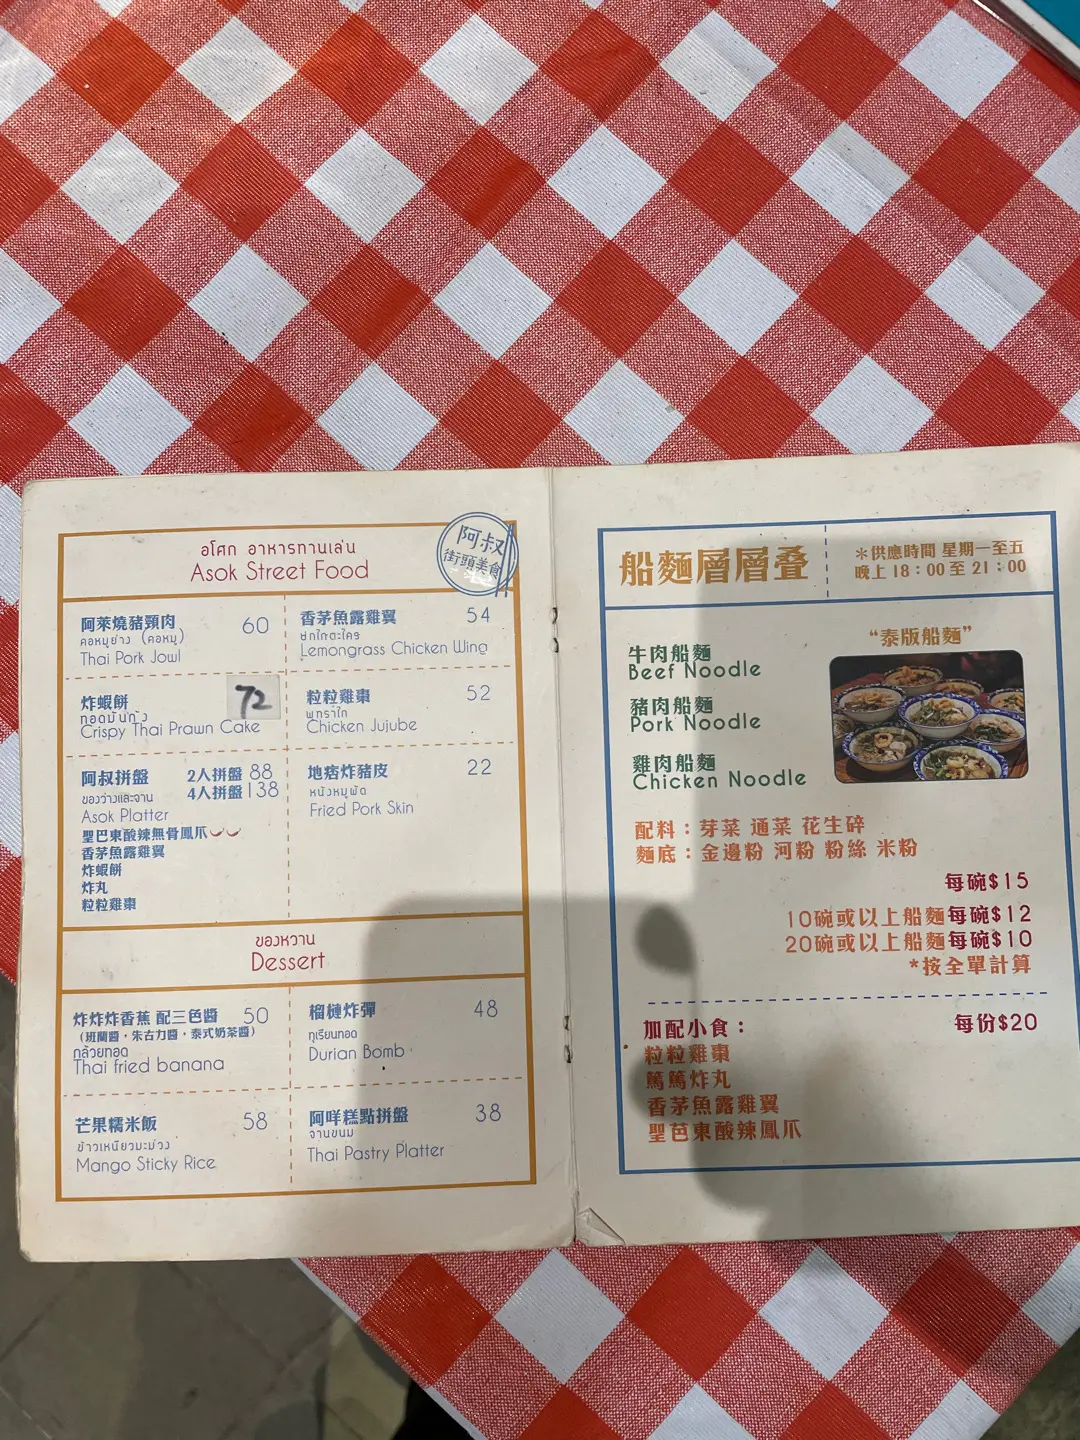 อโศก อาหารทานเล่น
Asok Street Food
阿叔
街頭美食
阿萊燒豬頸肉 60
คอหมูย่าง (คอหมู)
Thai Pork Jowl
香茅魚露雞翼 54
Lemongrass Chicken Wing
炸蝦餅 72
ทอดมันกุ้ง
Crispy Thai Prawn Cake
粒粒雞棗 52
Chicken Jujube
阿叔拼盤 2人拼盤 88
4人拼盤 138
ของว่างและจาน
Asok Platter
聖芭東酸辣無骨鳳爪
香茅魚露雞翼
炸蝦餅
炸丸
粒粒雞棗
地痞炸豬皮 22
Fried Pork Skin
ของหวาน
Dessert
炸炸炸香蕉 配三色醬 50
(班蘭醬・朱古力醬・泰式奶茶醬)
กล้วยทอด
Thai fried banana
榴槤炸彈 48
ทุเรียนทอด
Durian Bomb
芒果糯米飯 58
ข้าวเหนียวมะม่วง
Mango Sticky Rice
阿咩糕點拼盤 38
จานขนม
Thai Pastry Platter
船麵層層叠
*供應時間 星期一至五
晚上 18:00 至 21:00
“泰版船麵”
牛肉船麵
Beef Noodle
豬肉船麵
Pork Noodle
雞肉船麵
Chicken Noodle
配料：芽菜 通菜 花生碎
麵底：金邊粉 河粉 粉絲 米粉
每碗$15
10碗或以上船麵每碗$12
20碗或以上船麵每碗$10
*按全單計算
加配小食： 每份$20
粒粒雞棗
篤篤炸丸
香茅魚露雞翼
聖芭東酸辣鳳爪